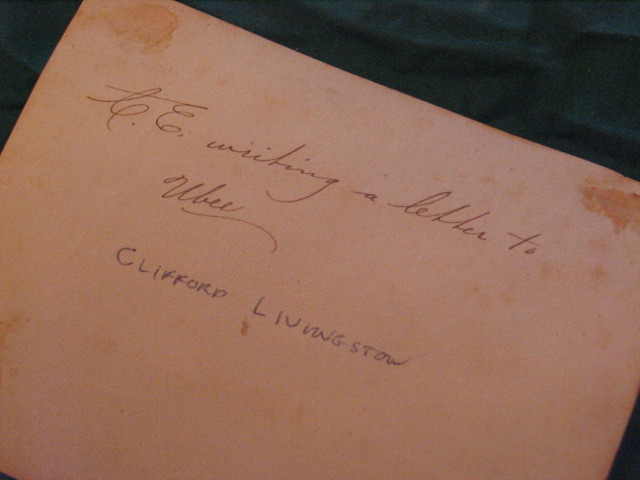 E. writing a letter to
CLIFFORD LIVINGSTON